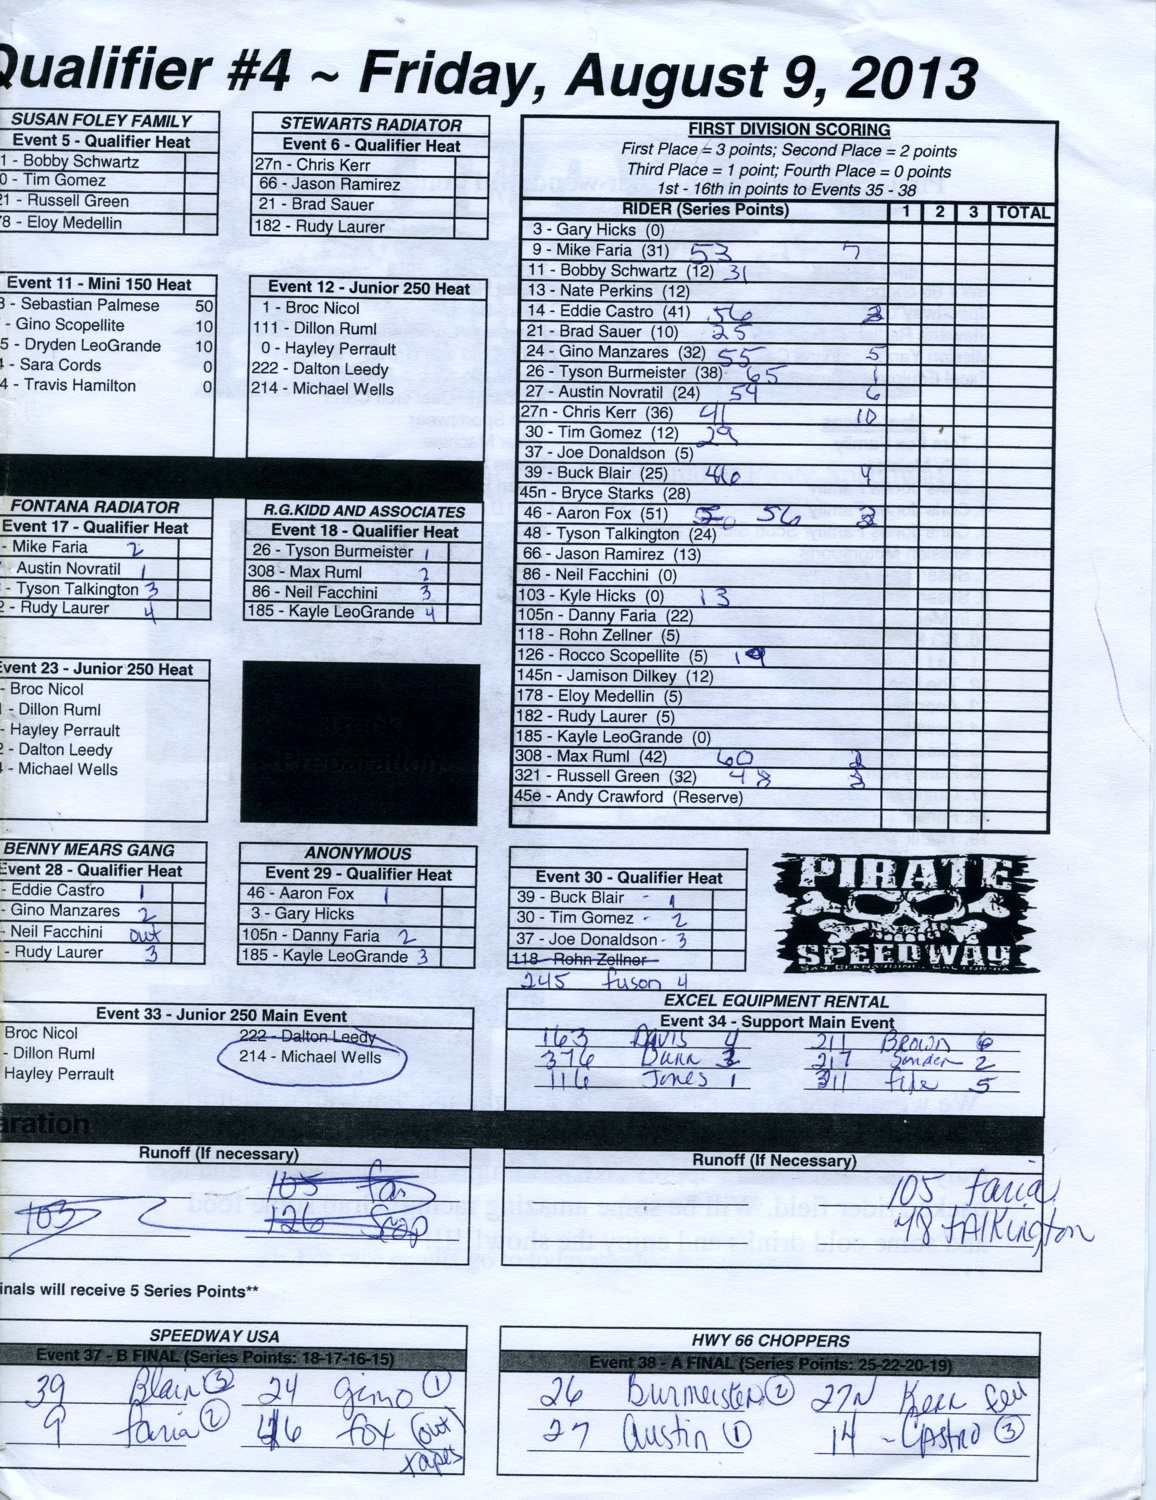 Qualifier #4 ~ Friday, August 9, 2013
SUSAN FOLEY FAMILY
Event 5 - Qualifier Heat
1 - Bobby Schwartz
0 - Tim Gomez
21 - Russell Green
78 - Eloy Medellin
STEWARTS RADIATOR
Event 6 - Qualifier Heat
27n - Chris Kerr
66 - Jason Ramirez
21 - Brad Sauer
182 - Rudy Laurer
Event 11 - Mini 150 Heat
3 - Sebastian Palmese 50
- Gino Scopellite 10
5 - Dryden LeoGrande 10
- Sara Cords 0
4 - Travis Hamilton 0
Event 12 - Junior 250 Heat
1 - Broc Nicol
111 - Dillon Ruml
0 - Hayley Perrault
222 - Dalton Leedy
214 - Michael Wells
FONTANA RADIATOR
Event 17 - Qualifier Heat
- Mike Faria 2
Austin Novratil 1
- Tyson Talkington 3
2 - Rudy Laurer 4
R.G.KIDD AND ASSOCIATES
Event 18 - Qualifier Heat
26 - Tyson Burmeister 1
308 - Max Ruml 2
86 - Neil Facchini 3
185 - Kayle LeoGrande 4
Event 23 - Junior 250 Heat
- Broc Nicol
- Dillon Ruml
- Hayley Perrault
2 - Dalton Leedy
- Michael Wells
FIRST DIVISION SCORING
First Place = 3 points; Second Place = 2 points
Third Place = 1 point; Fourth Place = 0 points
1st - 16th in points to Events 35 - 38
RIDER (Series Points) 1 2 3 TOTAL
3 - Gary Hicks (0)
9 - Mike Faria (31) 53 7
11 - Bobby Schwartz (12) 31
13 - Nate Perkins (12)
14 - Eddie Castro (41) 56
21 - Brad Sauer (10) 25
24 - Gino Manzares (32) 55 5
26 - Tyson Burmeister (38) 65 1
27 - Austin Novratil (24) 54 6
27n - Chris Kerr (36) 41 10
30 - Tim Gomez (12) 29
37 - Joe Donaldson (5)
39 - Buck Blair (25) 46 9
45n - Bryce Starks (28)
46 - Aaron Fox (51) 56
48 - Tyson Talkington (24)
66 - Jason Ramirez (13)
86 - Neil Facchini (0)
103 - Kyle Hicks (0) 13
105n - Danny Faria (22)
118 - Rohn Zellner (5)
126 - Rocco Scopellite (5)
145n - Jamison Dilkey (12)
178 - Eloy Medellin (5)
182 - Rudy Laurer (5)
185 - Kayle LeoGrande (0)
308 - Max Ruml (42) 60
321 - Russell Green (32) 48
45e - Andy Crawford (Reserve)
BENNY MEARS GANG
Event 28 - Qualifier Heat
- Eddie Castro 1
- Gino Manzares 2
- Neil Facchini out
- Rudy Laurer 3
ANONYMOUS
Event 29 - Qualifier Heat
46 - Aaron Fox 1
3 - Gary Hicks
105n - Danny Faria 2
185 - Kayle LeoGrande 3
Event 30 - Qualifier Heat
39 - Buck Blair - 1
30 - Tim Gomez - 2
37 - Joe Donaldson - 3
118 - Rohn Zellner
245 fuson 4
PIRATE
SPEEDWAY
SAN BERNARDINO, CALIFORNIA
Event 33 - Junior 250 Main Event
Broc Nicol 222 - Dalton Leedy
- Dillon Ruml 214 - Michael Wells
Hayley Perrault
EXCEL EQUIPMENT RENTAL
Event 34 - Support Main Event
163 Davis 4 211 Brown 6
376 Dunn 3 217 Sander 2
116 Jones 1 311 5
aration
Runoff (If necessary)
105
103 126
Runoff (If Necessary)
105 Faria
48 TALKington
inals will receive 5 Series Points**
SPEEDWAY USA
Event 37 - B FINAL (Series Points: 18-17-16-15)
39 Blair 3 24 gino 1
9 faria 2 46 fox (out
tapes)
HWY 66 CHOPPERS
Event 38 - A FINAL (Series Points: 25-22-20-19)
26 Burmeister 2 27N Kerr fell
27 Austin 1 14 - Castro 3